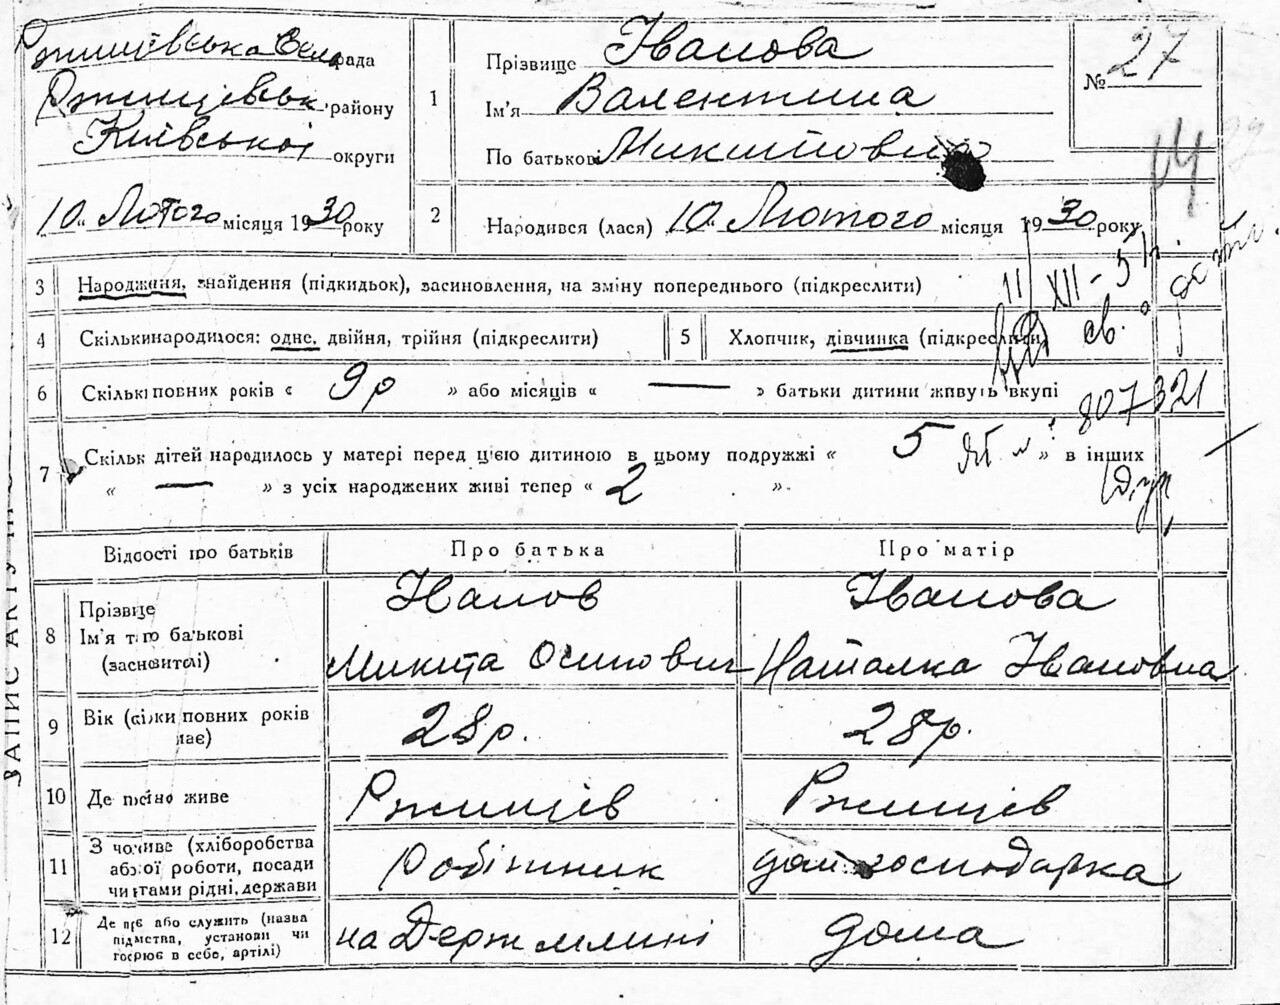 Ржищівська Сел рада
Ржищевськ. району
Київської округи
"10" Лютого місяця 1930 року
1 Прізвище Іванова
Ім'я Валентина
По батькові Микитовна
№ 27
2 Народився (лася) "10" Лютого місяця 1930 року
3 Народження, знайдення (підкидьок), засиновлення, на зміну попереднього (підкреслити)
11/XII-51г.
4 Скільки народилося: одне, двійня, трійня (підкреслити) 5 Хлопчик, дівчинка (підкреслити)
6 Скількі повних років « 9р » або місяців « — » батьки дитини живуть вкупі
807321
7 Скільк дітей народилось у матері перед цією дитиною в цьому подружжі « 5 » в інших
« — » з усіх народжених живі тепер « 2 ».
Відомості про батьків Про батька Про матір
8 Прізвище Іванов Іванова
Ім'я та по батькові Микита Осипович Наталка Івановна
(засновителі)
9 Вік (скільки повних років має) 28р. 28р.
10 Де постійно живе Ржищев Ржищев
11 З чого живе (хліборобства або якої роботи, посади чи етами рідні, держави Робітник дом. господарка
12 Де працює або служить (назва підмства, установи чи госрює в себе, артілі) на Держмлині дома
ЗАПИС АКТУ ПРО